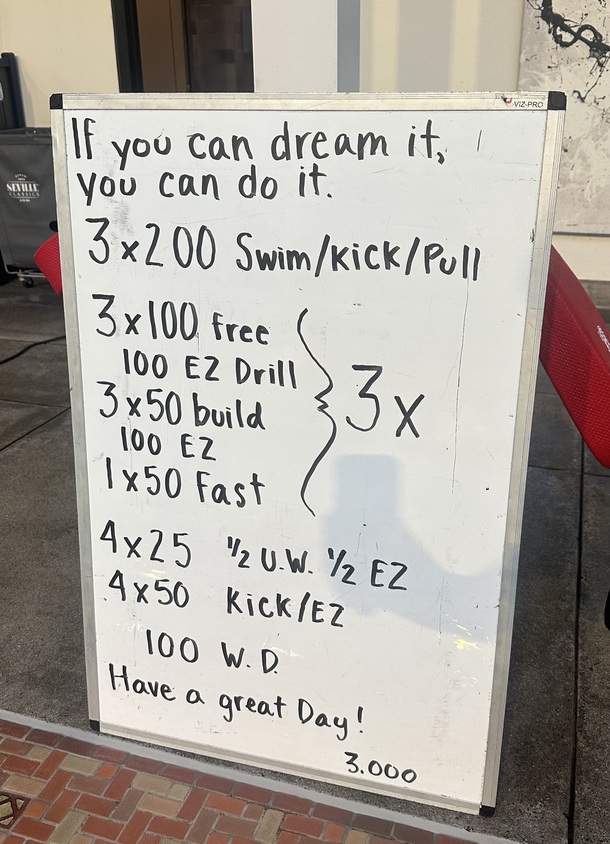 VIZ-PRO
If you can dream it,
you can do it.
3x200 Swim/Kick/Pull
3x100 free
100 EZ Drill
3x50 build
100 EZ
1x50 Fast
3x
4x25 1/2 U.W. 1/2 EZ
4x50 Kick/EZ
100 W.D.
Have a great Day!
3.000
SEVILLE
CLASSICS